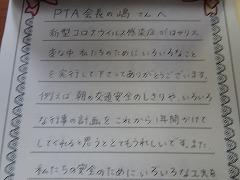 PTA会長の嶋さんへ
新型コロナウイルス感染症がはやり大
変な中私たちのためにいろいろなこと
を実行して下さってありがとうございます。
例えば、朝の交通安全のしきりや、いろいろ
な行事の計画をこれから1年間かけて
してくれると思うととてもうれしいです。また、
私たちの安全のためにいろいろな工夫を